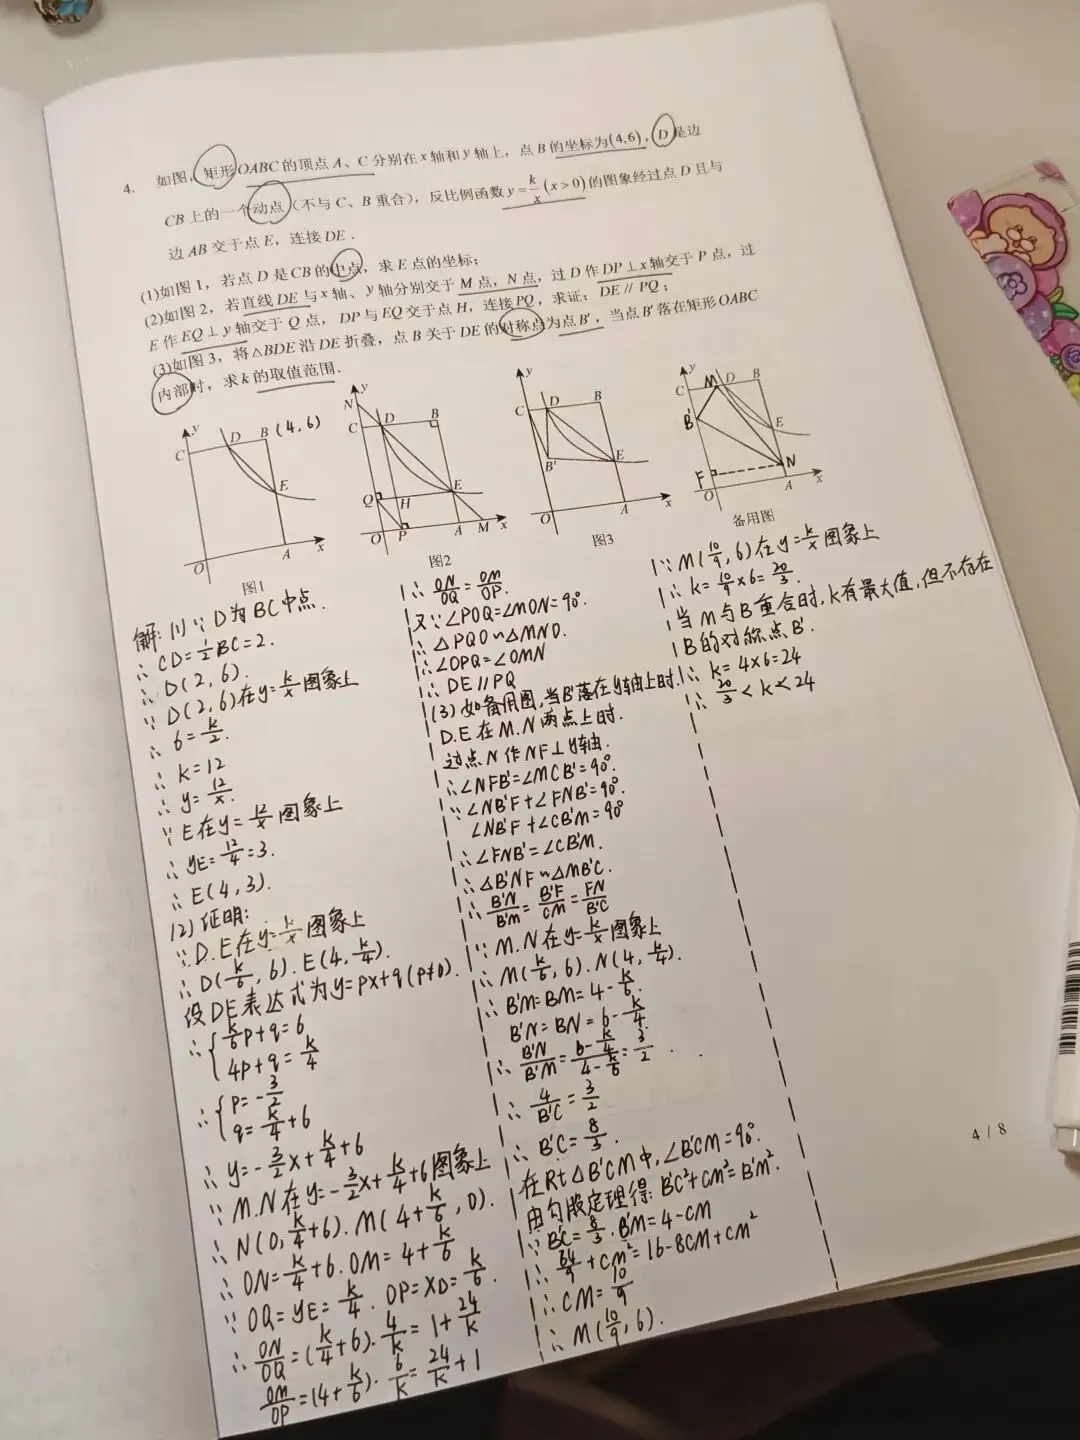 4. 如图，矩形OABC的顶点A、C分别在x轴和y轴上，点B的坐标为(4,6)，D是边
CB上的一个动点（不与C、B重合），反比例函数y=k/x(x>0)的图象经过点D且与
边AB交于点E，连接DE．
(1)如图1，若点D是CB的中点，求E点的坐标；
(2)如图2，若直线DE与x轴、y轴分别交于M点，N点，过D作DP⊥x轴交于P点，过
E作EQ⊥y轴交于Q点，DP与EQ交于点H，连接PQ，求证：DE//PQ；
(3)如图3，将△BDE沿DE折叠，点B关于DE的对称点为点B′，当点B′落在矩形OABC
内部时，求k的取值范围．
y C D B (4,6) E O A x
图1
y N C D B Q H E O P A M x
图2
y C D B B' E O A x
图3
y C M D B B' E F N O A x
备用图
解：(1)∵D为BC中点．
∴CD=1/2BC=2．
∴D(2,6)．
∵D(2,6)在y=k/x图象上
∴6=k/2．
∴k=12
∴y=12/x．
∵E在y=12/x图象上
∴yE=12/4=3．
∴E(4,3)．
(2)证明：
∵D.E在y=k/x图象上
∴D(k/6,6)．E(4,k/4)．
设DE表达式为y=px+q(p≠0)．
∴{k/6p+q=6
4p+q=k/4
∴{p=-3/2
q=k/4+6
∴y=-3/2x+k/4+6
∵M.N在y=-3/2x+k/4+6图象上
∴N(0,k/4+6)．M(4+k/6,0)．
∴ON=k/4+6．OM=4+k/6
∵OQ=yE=k/4．OP=xD=k/6．
∴ON/OQ=(k/4+6)·4/k=1+24/k
OM/OP=(4+k/6)·6/k=24/k+1
∴ON/OQ=OM/OP．
又∵∠POQ=∠MON=90°．
∴△PQO∽△MNO．
∴∠OPQ=∠OMN
∴DE//PQ
(3)如备用图，当B'落在y轴上时．
D.E在M.N两点上时．
过点N作NF⊥y轴．
∴∠NFB'=∠MCB'=90°．
∵∠NB'F+∠FNB'=90°．
∠NB'F+∠CB'M=90°
∴∠FNB'=∠CB'M．
∴△B'NF∽△MB'C．
∴B'N/B'M=B'F/CM=FN/B'C
∵M.N在y=k/x图象上
∴M(k/6,6)．N(4,k/4)．
∴B'M=BM=4-k/6．
B'N=BN=6-k/4
∴B'N/B'M=(6-k/4)/(4-k/6)=3/2．
∴4/B'C=3/2
∴B'C=8/3．
在Rt△B'CM中，∠B'CM=90°．
由勾股定理得：B'C²+CM²=B'M²．
∵B'C=8/3．B'M=4-CM
∴64/9+CM²=16-8CM+CM²
∴CM=10/9
∴M(10/9,6)．
∵M(10/9,6)在y=k/x图象上
∴k=10/9×6=20/3．
当M与B重合时，k有最大值，但不存在
B的对称点B'．
∴k=4×6=24
∴20/3<k<24
4 / 8